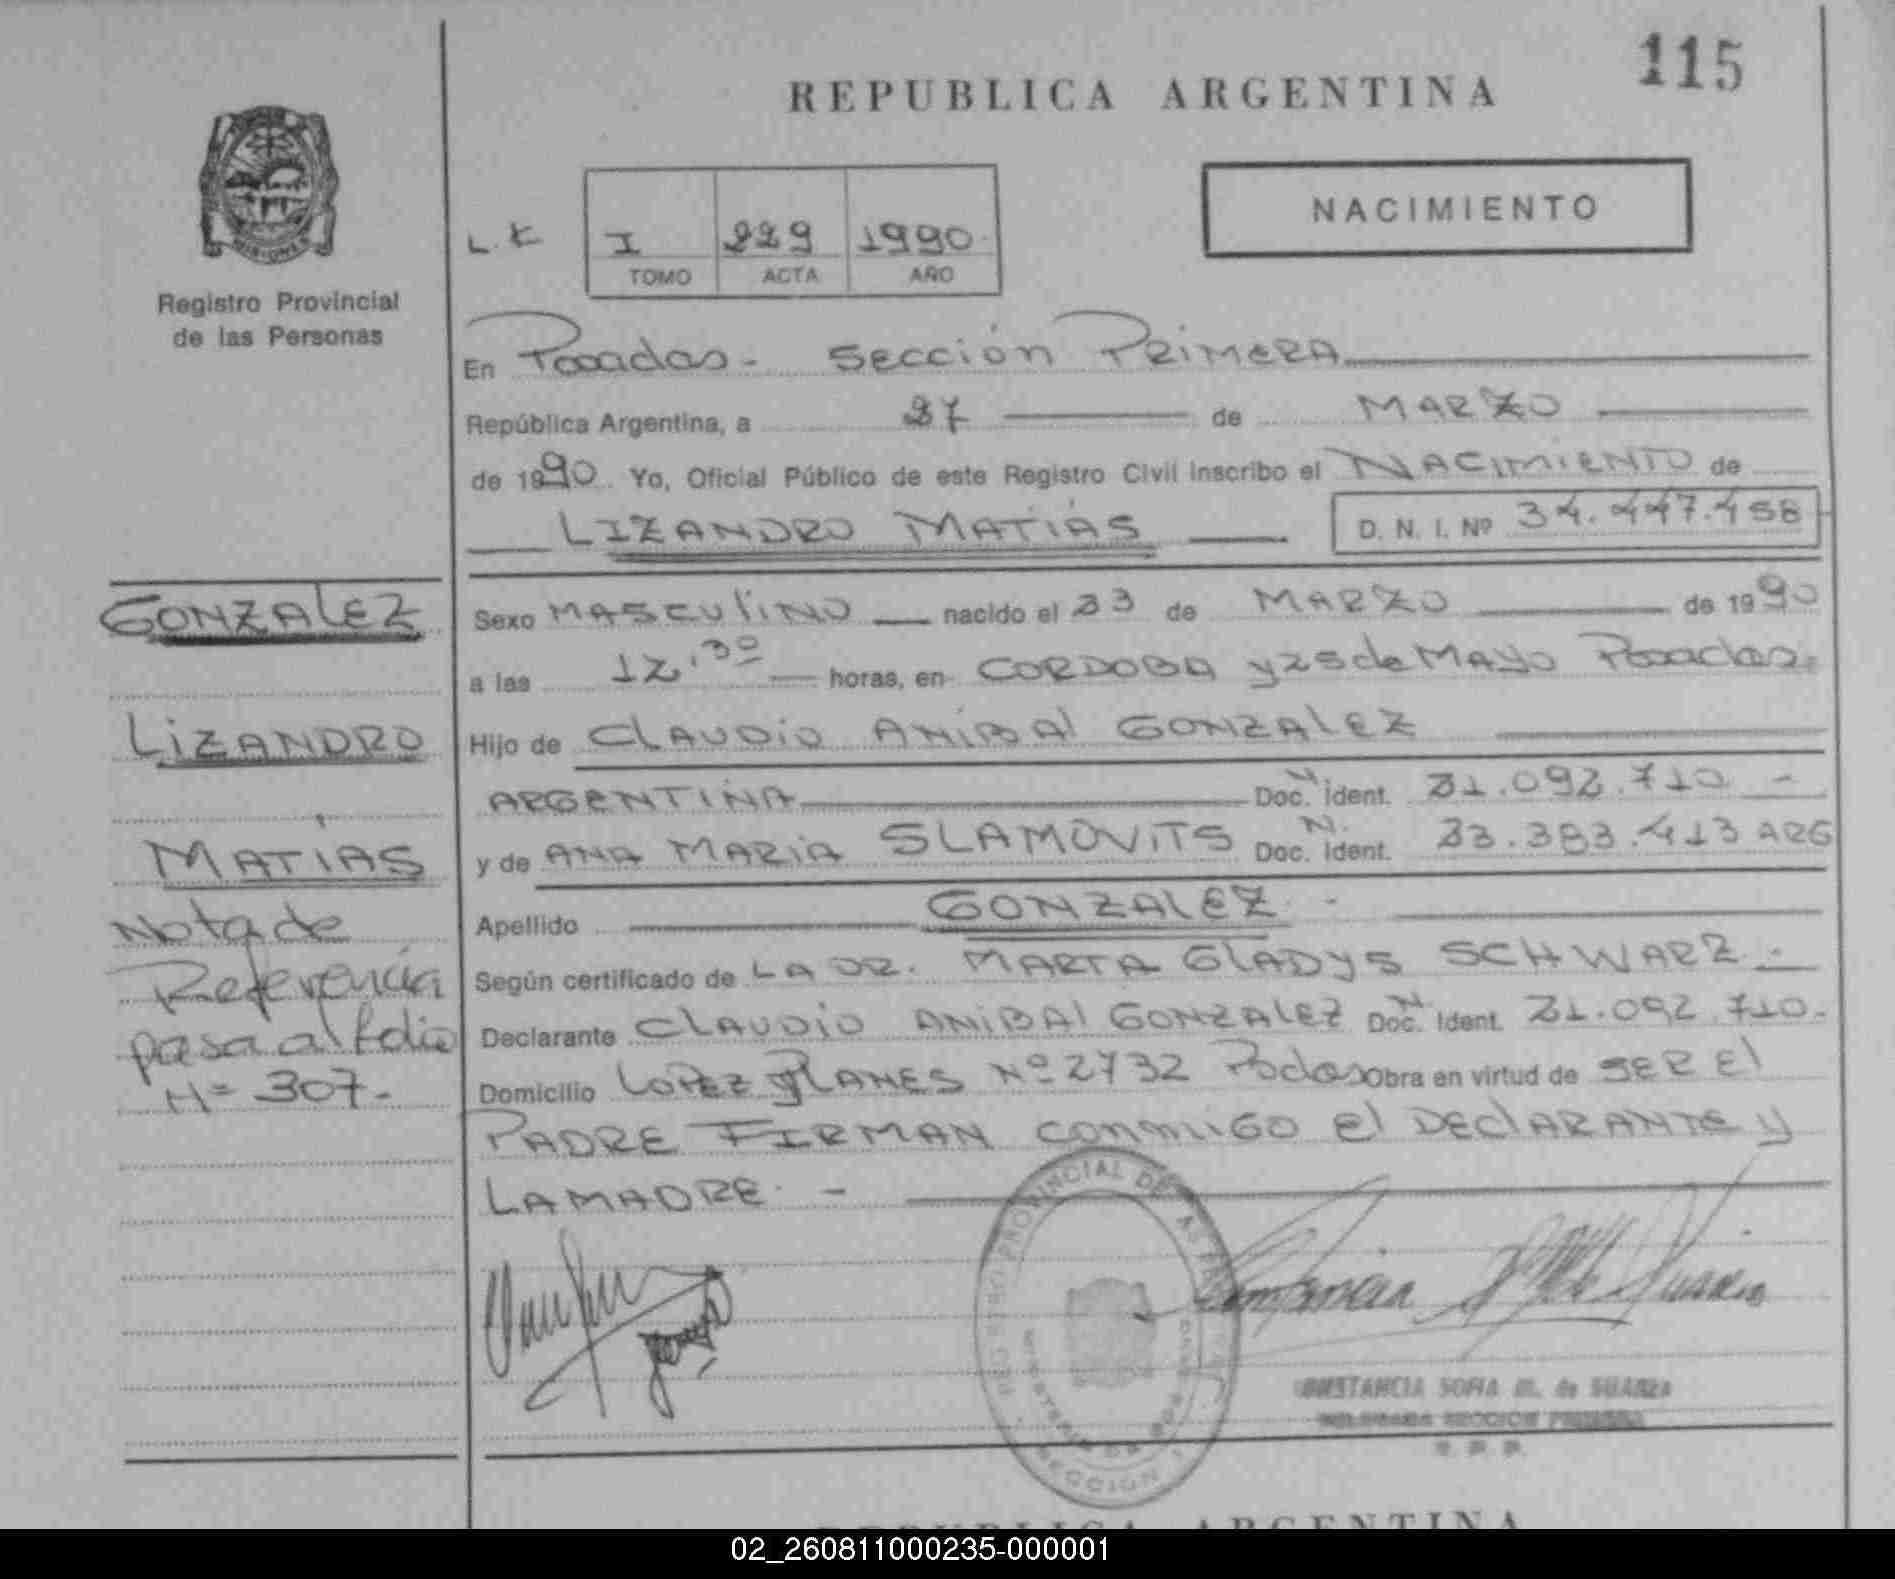 115
REPUBLICA ARGENTINA
NACIMIENTO
L. K I 229 1990
TOMO ACTA AÑO
MISIONES
Registro Provincial
de las Personas
En Posadas - Sección PRIMERA
República Argentina, a 27 de MARZO
de 1990 Yo, Oficial Público de este Registro Civil inscribo el NACIMIENTO de
LIZANDRO MATIAS D. N. I. Nº 34.447.458
GONZALEZ
LIZANDRO
MATIAS
Nota de
Referencia
pasa al folio
Nº 307.-
Sexo MASCULINO nacido el 23 de MARZO de 1990
a las 12,30 horas, en CORDOBA y 25 de MAYO Posadas.
Hijo de CLAUDIO ANIBAL GONZALEZ
ARGENTINA Doc. N Ident. 21.092.710 -
y de ANA MARIA SLAMOVITS Doc. N. Ident. 23.383.413 ARG
Apellido GONZALEZ -
Según certificado de LA DR. MARTA GLADYS SCHWARZ -
Declarante CLAUDIO ANIBAL GONZALEZ Doc. N Ident. 21.092.710.
Domicilio LOPEZ y PLANES Nº 2732 Podas Obra en virtud de SER El
PADRE FIRMAN CONMIGO El DECLARANTE y
LA MADRE. -
REGISTRO PROVINCIAL DE LAS
SECCION 1
CONSTANCIA SOFIA M. de SUAREZ
DELEGADA SECCION PRIMERA
R. P. P.
REPUBLICA ARGENTINA
02_260811000235-000001